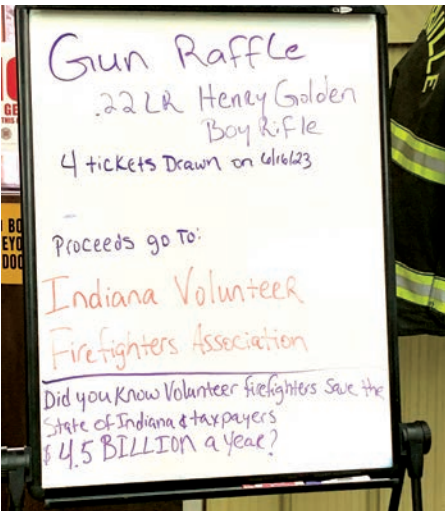 Gun Raffle
.22LR Henry Golden
Boy Rifle
4 tickets Drawn on 6/16/23
Proceeds go To:
Indiana Volunteer
Firefighters Association
Did you Know Volunteer firefighters Save the
State of Indiana & taxpayers
$4.5 BILLION a year?